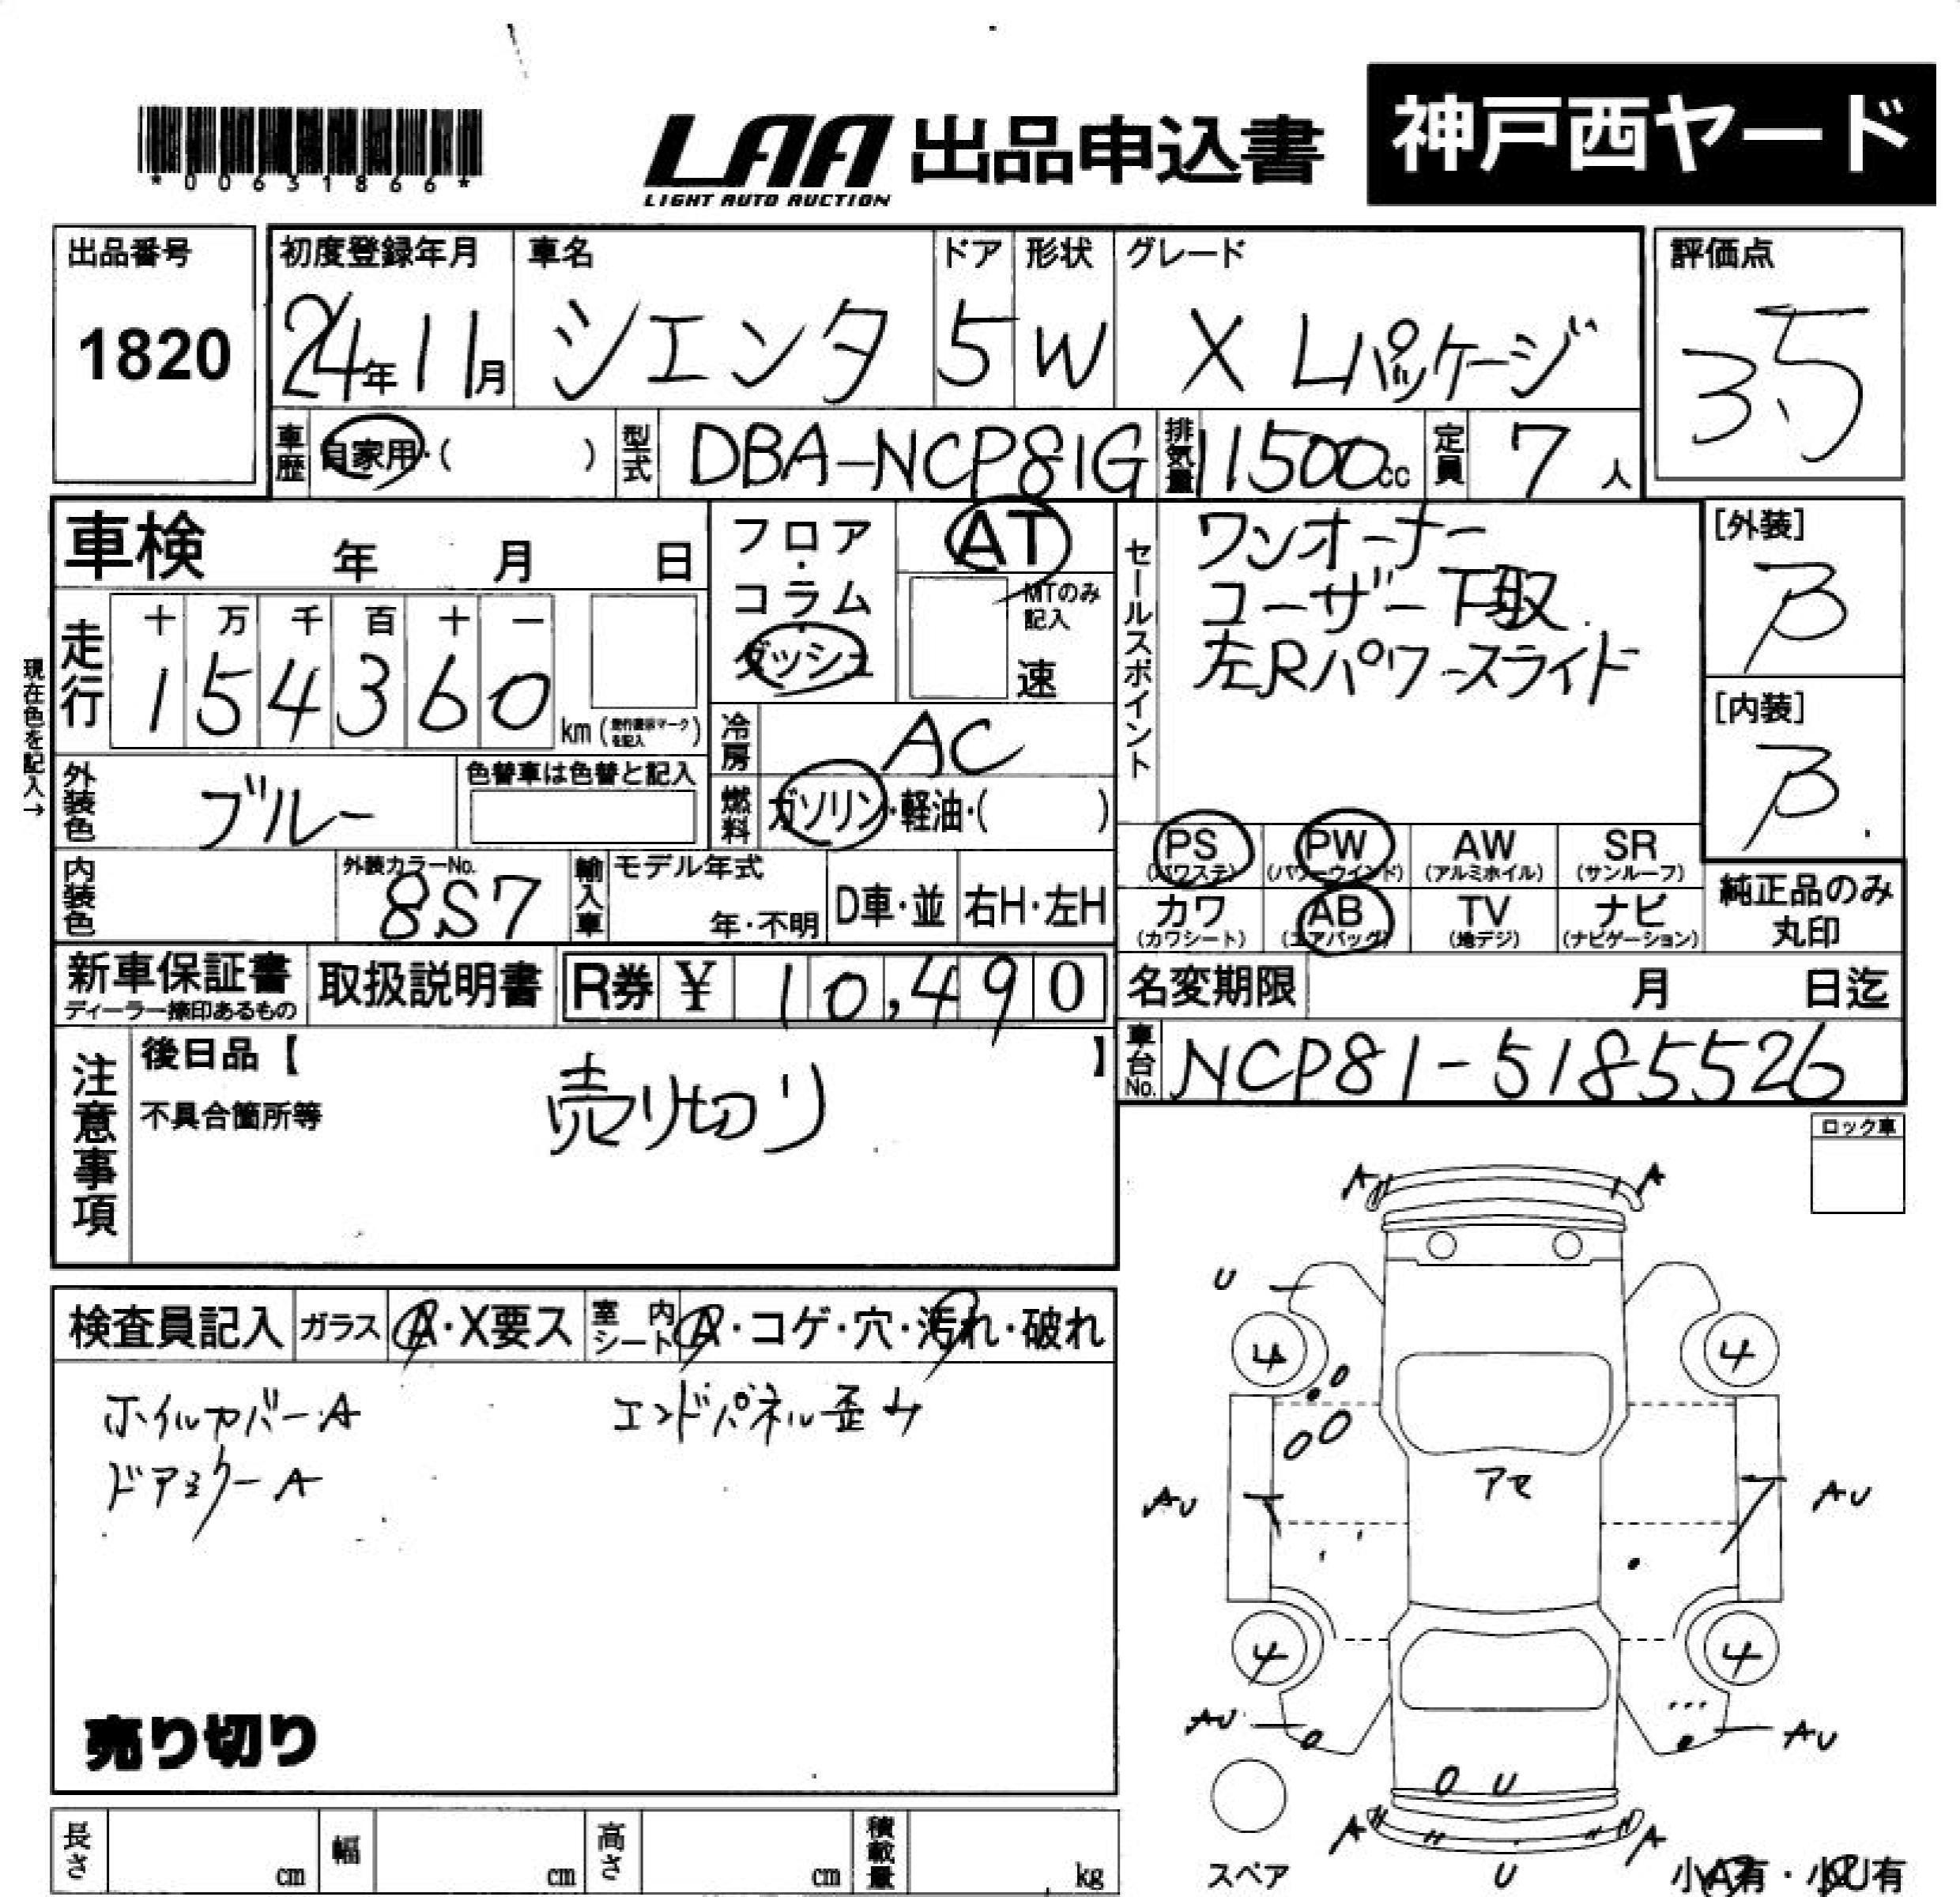 *00631866*
LAA 出品申込書
LIGHT AUTO AUCTION
神戸西ヤード
出品番号
1820
初度登録年月
24年11月
車名
シエンタ
ドア
5
形状
W
グレード
X Lパッケージ
評価点
3.5
車歴
自家用・( )
型式
DBA-NCP81G
排気量
1500cc
定員
7人
車検 年 月 日
フロア・コラム
ダッシュ
AT
MTのみ記入
速
セールスポイント
ワンオーナー
ユーザー下取
左Rパワースライド
[外装]
B
[内装]
B
現在色を記入→
走行
十 万 千 百 十 一
1 5 4 3 6 0
km (走行表示マークを記入)
冷房
AC
外装色
ブルー
色替車は色替と記入
燃料
ガソリン・軽油・( )
PS (パワステ)
PW (パワーウインド)
AW (アルミホイル)
SR (サンルーフ)
カワ (カワシート)
AB (エアバッグ)
TV (地デジ)
ナビ (ナビゲーション)
純正品のみ丸印
内装色
外装カラーNo.
8S7
輸入車
モデル年式
年・不明
D車・並
右H・左H
新車保証書
ディーラー捺印あるもの
取扱説明書
R券 ¥ 10,490
名変期限 月 日迄
車台No.
NCP81-5185526
注意事項
後日品【 】
不具合箇所等
売り切り
ロック車
検査員記入
ガラス
A・X要ス
室内シート
A・コゲ・穴・汚れ・破れ
ホイルカバーA
エンドパネル歪み
ドアミラーA
売り切り
A A
U
4 4
アセ
AU AU
4 4
AU AU
U
A A
U
スペア
小A有・小U有
長さ cm
幅 cm
高さ cm
積載量 kg